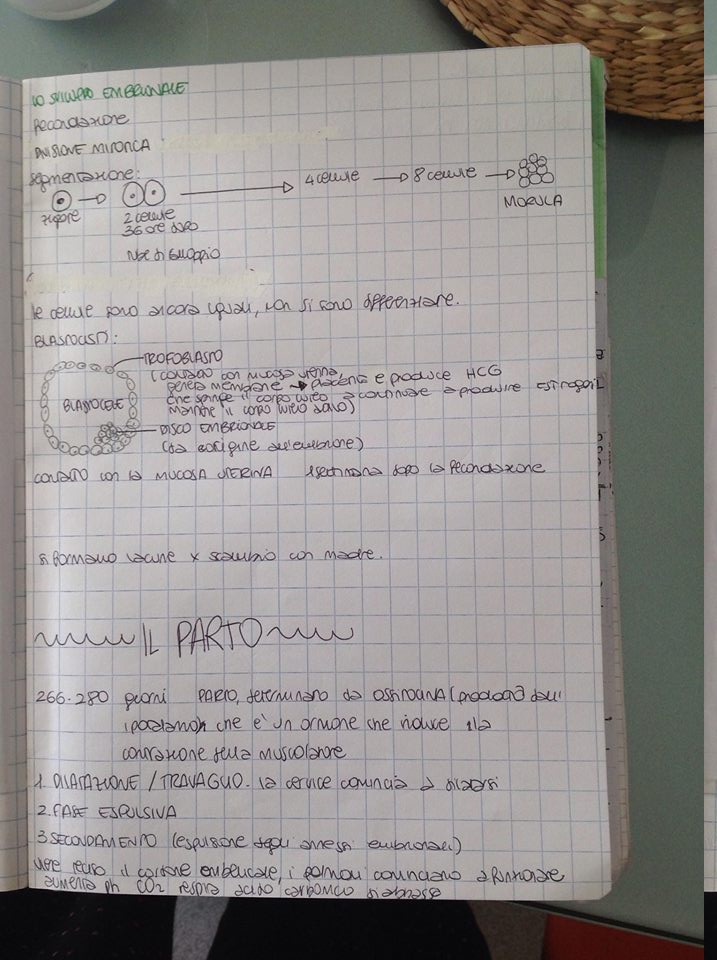 LO SVILUPPO EMBRIONALE
Fecondazione
DIVISIONE MITOTICA
Segmentazione:
zigote
2 cellule
36 ore dopo
4 cellule
8 cellule
MORULA
tube di falloppio
le cellule sono ancora uguali, non si sono differenziate.
BLASTOCISTI:
TROFOBLASTO
(contatto con mucosa uterina,
genera membrane → placenta e produce HCG
che spinge il corpo luteo a continuare a produrre estrogeni
mantiene il corpo luteo)
BLASTOCELE
DISCO EMBRIONALE
(dà origine all'embrione)
CONTATTO CON LA MUCOSA UTERINA 1 settimana dopo la fecondazione
si formano lacune x scambio con madre.
IL PARTO
266-280 giorni PARTO, determinato da OSSITOCINA (prodotta dall'
ipotalamo) che è un ormone che induce alla
contrazione della muscolatura
1. DILATAZIONE / TRAVAGLIO. la cervice comincia a dilatarsi
2. FASE ESPULSIVA
3 SECONDAMENTO (espulsione degli annessi embrionali)
viene reciso il cordone ombelicale, i polmoni cominciano a funzionare
aumenta ph CO2 respira acido carbonico si abbassa